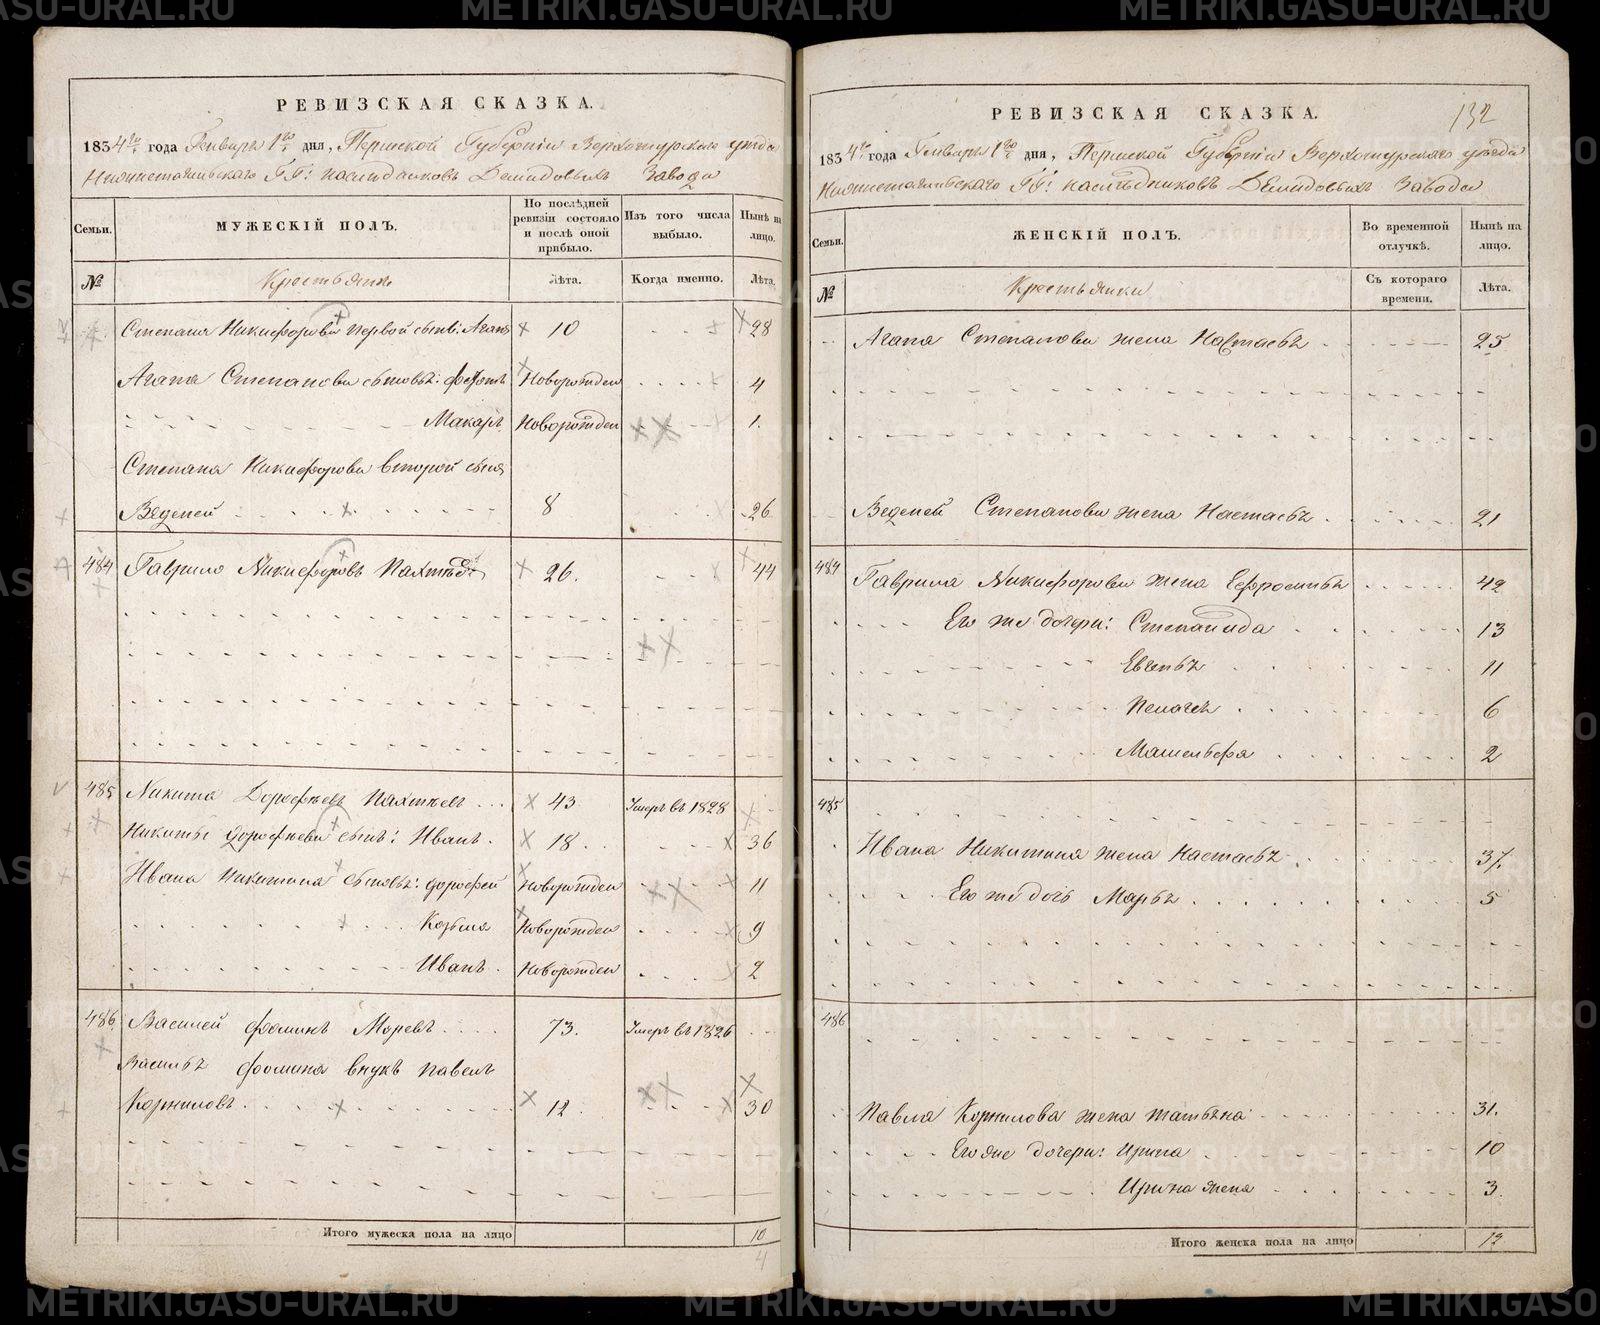 РЕВИЗСКАЯ СКАЗКА.
1834го года Генваря 1го дня, Пермской Губерніи Верхотурскаго уезда
Нижнетагильскаго ГГ: наследниковъ Демидовыхъ Завода
Семьи.
МУЖЕСКІЙ ПОЛЪ.
По послѣдней ревизіи состояло и послѣ оной прибыло.
Изъ того числа выбыло.
Нынѣ на лицо.
№
Крестьяне
Лѣта.
Когда именно.
Лѣта.
Степана Никифорова первой сынъ: Агапъ 10 28
Агапа Степанова сыновья: Федотъ Новорожден 4
Макаръ Новорожден 1.
Степана Никифорова второй сынъ
Веденей 8 26
484 Гаврило Никифоровъ 26. 44
485 Никита Дорофеевъ Пахтеевъ 43 Умеръ въ 1828
Никиты Дорофеева сынъ: Иванъ. 18. 36
Ивана Никитина сыновья: Дорофей Новорожден 11
Козьма Новорожден 9
Иванъ. Новорожден 2
486 Василей Фоминъ Моревъ 73. Умеръ въ 1826
Василья Фомина внукъ Павелъ
Корниловъ 12. 30
Итого мужеска пола на лицо 10
4
132
РЕВИЗСКАЯ СКАЗКА.
1834го года Генваря 1го дня, Пермской Губерніи Верхотурскаго уезда
Нижнетагильскаго ГГ: наследниковъ Демидовыхъ Завода
Семьи.
ЖЕНСКІЙ ПОЛЪ.
Во временной отлучкѣ.
Нынѣ на лицо.
№
Крестьянки
Съ котораго времени.
Лѣта.
Агапа Степанова жена Настасья 25
Веденея Степанова жена Настасья 21
484 Гаврила Никифорова жена Ефросинья 42
Его же дочери: Степанида 13
11
Пелагея 6
2
485
Ивана Никитина жена Настасья 37.
Его же дочь Марья 5
486
Павла Корнилова жена Татьяна 31.
Его же дочери: Ирина 10
Ирина же 3.
Итого женска пола на лицо 12
METRIKI.GASO-URAL.RU